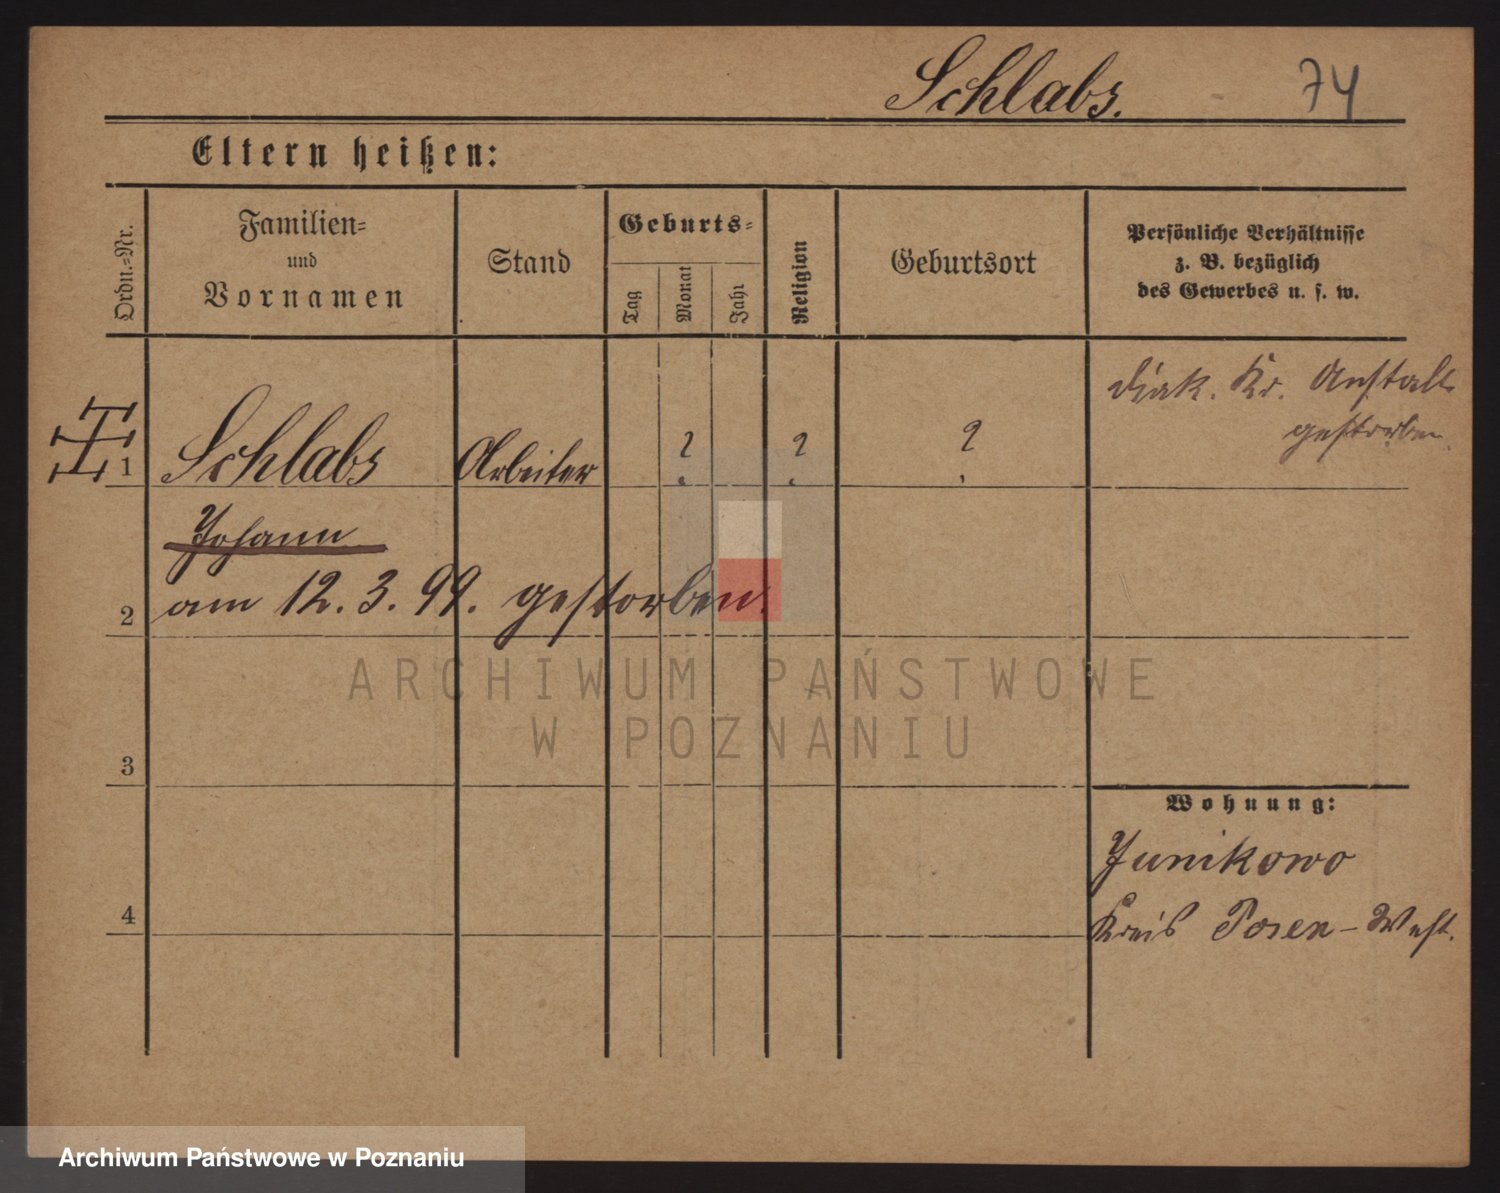 Schlabs.
74
Eltern heißen:
Ordn.-Nr.
Familien-
und
Vornamen
Stand
Geburts-
Tag
Monat
Jahr
Religion
Geburtsort
Persönliche Verhältnisse
z. B. bezüglich
des Gewerbes u. s. w.
1
Schlabs
Arbeiter
?
?
?
Diak. Kr. Anstalt
gestorben.
Johann
2
am 12. 3. 99. gestorben.
ARCHIWUM PAŃSTWOWE
W POZNANIU
3
Wohnung:
Junikowo
4
Kreis Posen-West.
Archiwum Państwowe w Poznaniu